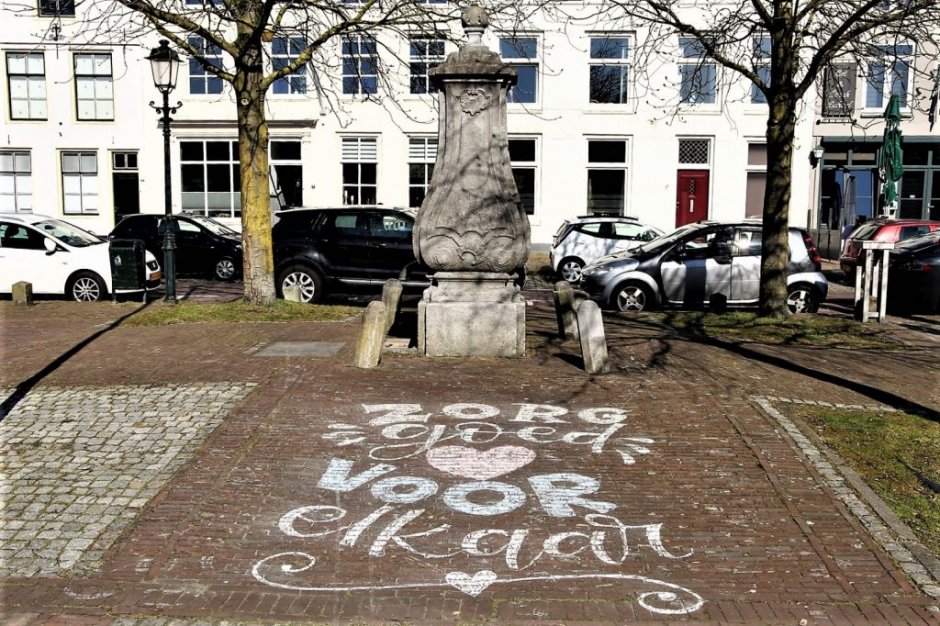 ZORG
goed
VOOR
elkaar